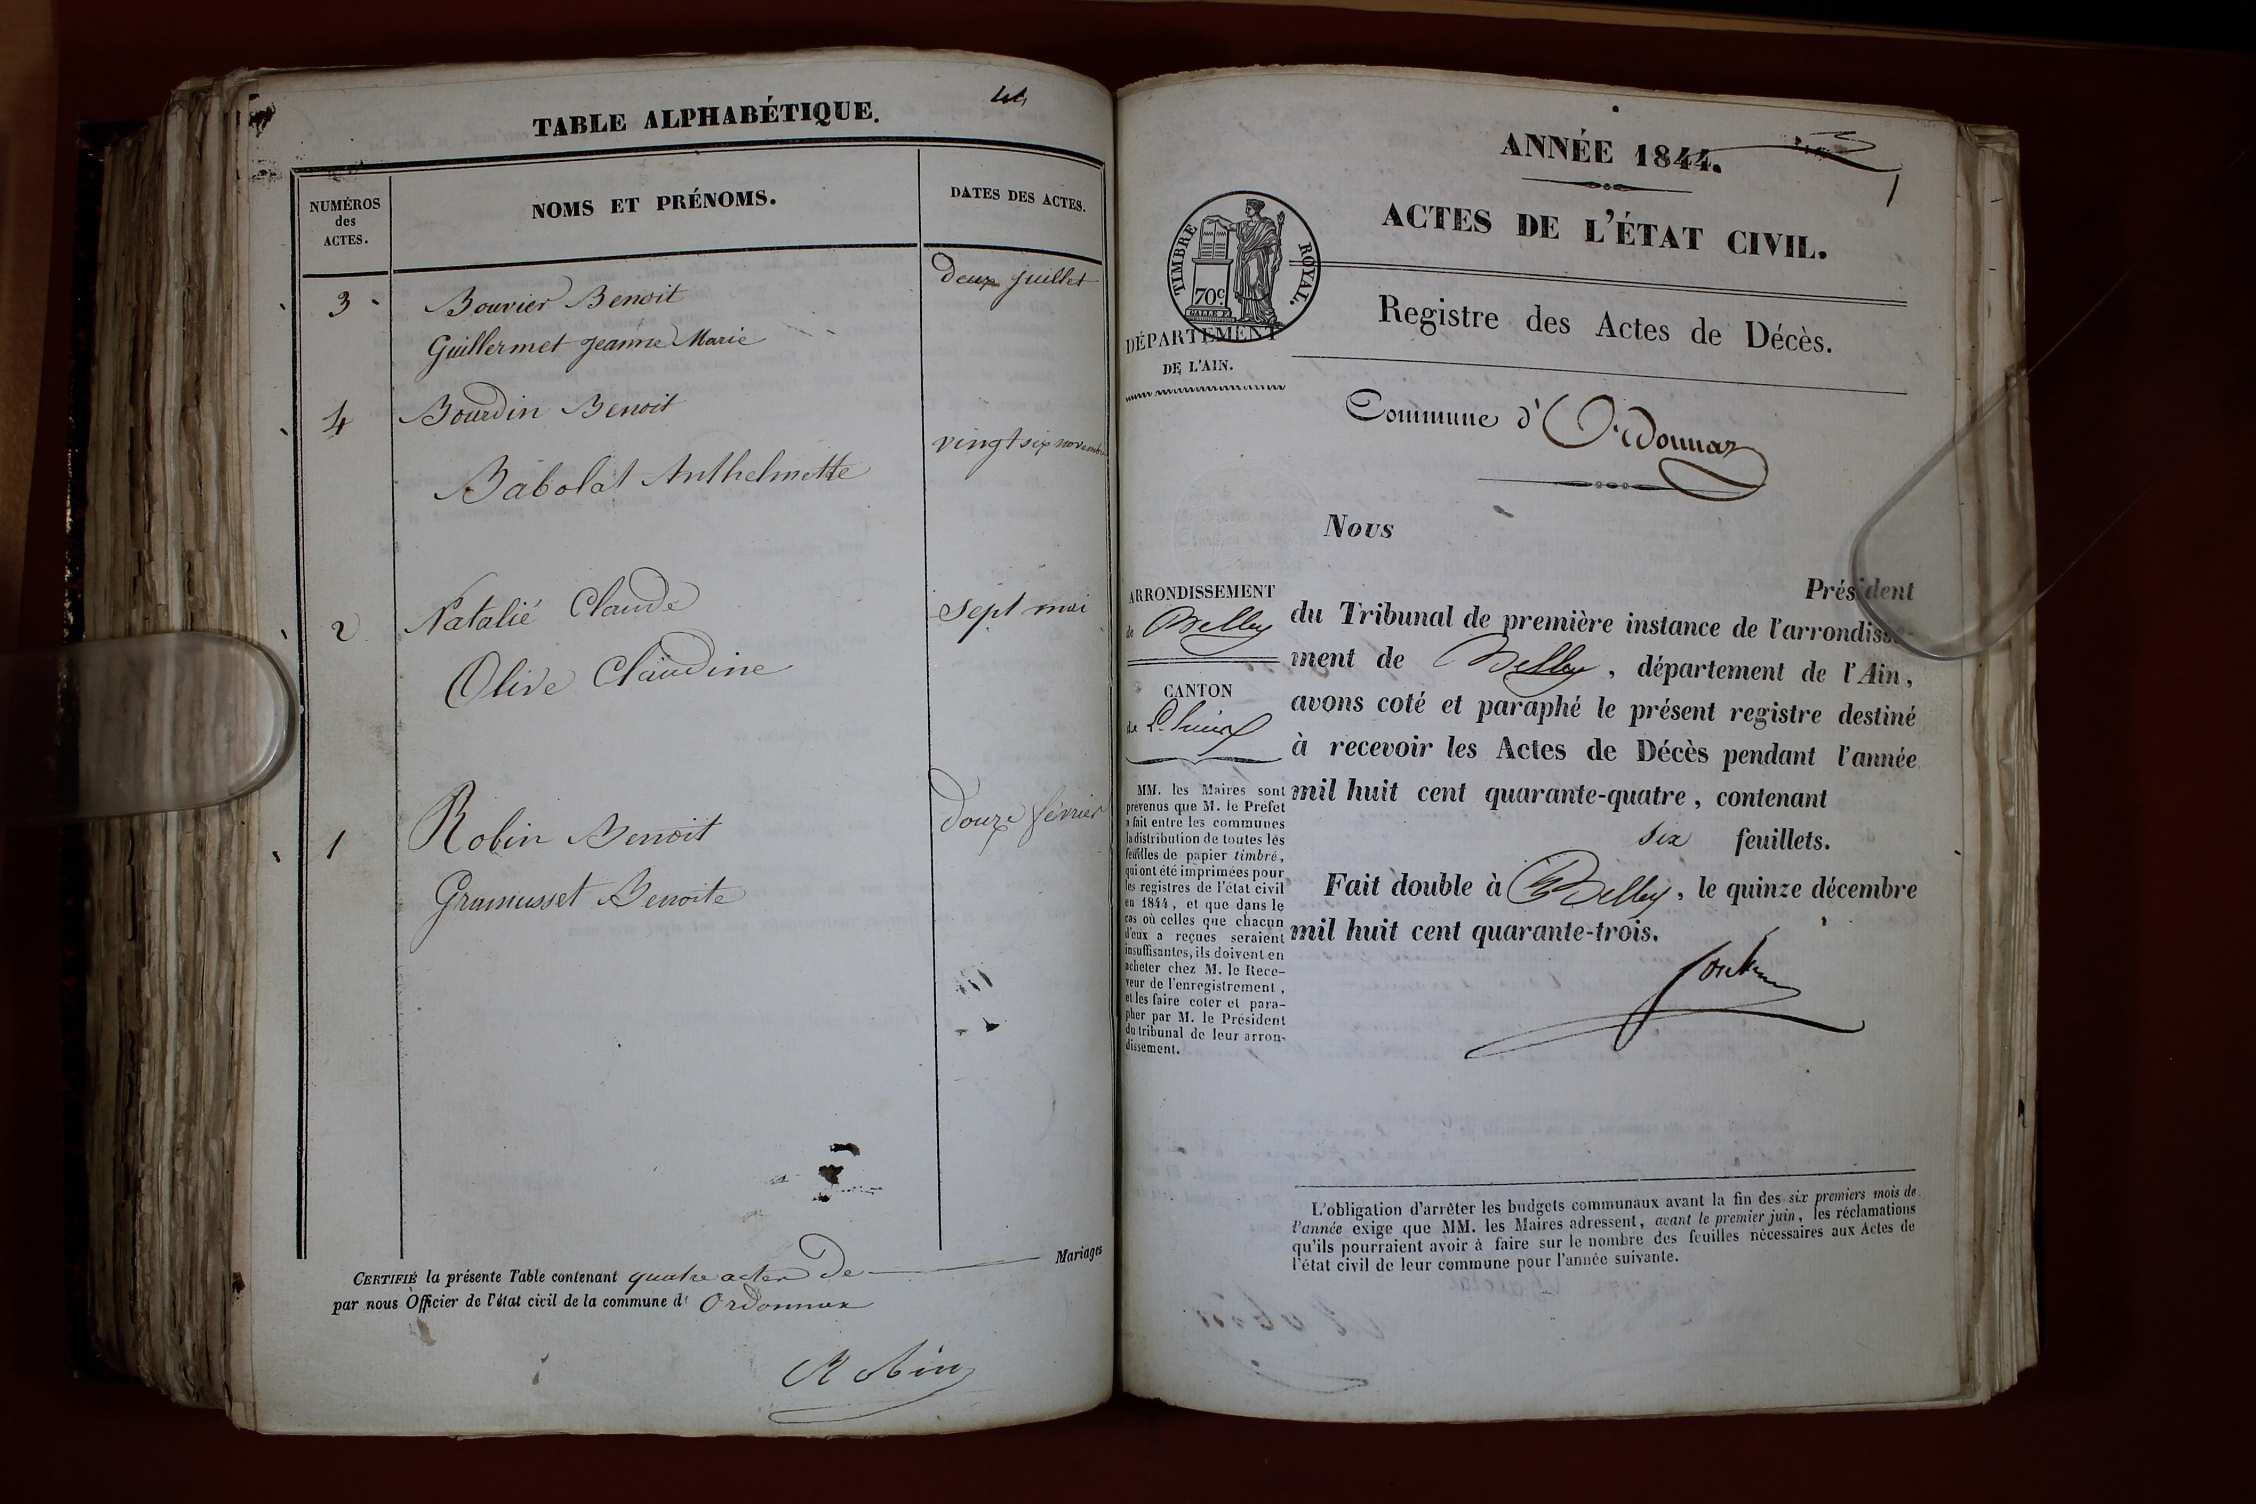 44
TABLE ALPHABÉTIQUE.
NUMÉROS
des
ACTES.
NOMS ET PRÉNOMS.
DATES DES ACTES.
3 Bouvier Benoit deux juillet
Guillermet jeanne Marie
4 Bourdin Benoit
vingt six novembre
Babolat Anthelmette
2 Natalié Claude sept mai
Olive Claudine
1 Robin Benoit douze février
Gramusset Benoite
CERTIFIÉ la présente Table contenant quatre actes de Mariages
par nous Officier de l'état civil de la commune d' Ordonnaz
Robin
ANNÉE 1844.
1
ACTES DE L'ÉTAT CIVIL.
TIMBRE ROYAL.
70c
DÉPARTEMENT
DE L'AIN.
Registre des Actes de Décès.
Commune d' Ordonnaz
Nous
Président
ARRONDISSEMENT
de Belley
CANTON
de Lhuis
MM. les Maires sont
prévenus que M. le Préfet
a fait entre les communes
la distribution de toutes les
feuilles de papier timbré,
qui ont été imprimées pour
les registres de l'état civil
en 1844, et que dans le
cas où celles que chacun
d'eux a reçues seraient
insuffisantes, ils doivent en
acheter chez M. le Rece-
veur de l'enregistrement,
et les faire coter et para-
pher par M. le Président
du tribunal de leur arron-
dissement.
du Tribunal de première instance de l'arrondisse-
ment de Belley, département de l'Ain,
avons coté et paraphé le présent registre destiné
à recevoir les Actes de Décès pendant l'année
mil huit cent quarante-quatre, contenant
six feuillets.
Fait double à Belley, le quinze décembre
mil huit cent quarante-trois.
L'obligation d'arrêter les budgets communaux avant la fin des six premiers mois de
l'année exige que MM. les Maires adressent, avant le premier juin, les réclamations
qu'ils pourraient avoir à faire sur le nombre des feuilles nécessaires aux Actes de
l'état civil de leur commune pour l'année suivante.